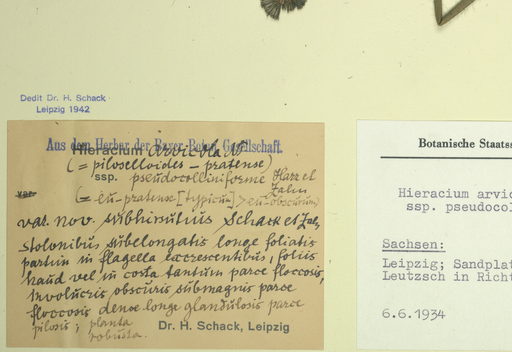 Dedit Dr. H. Schack
Leipzig 1942
Aus dem Herbar der Bayer. Botan. Gesellschaft.
Hieracium arvicola N
(= piloselloides - pratense)
ssp. pseudocolliniforme Harz et Zahn
var.
(= eu-pratense [typicum] > eu-obscurum)
var. nov. subhirsutius Schack et Zah.
stolonibus subelongatis longe foliatis
partim in flagella excrescentibus, foliis
haud vel in costa tantum parce floccosis,
involucris obscuris submagnis parce
floccosis dense longe glandulosis parce
pilosis; planta robusta.
Dr. H. Schack, Leipzig
Botanische Staatss
Hieracium arvic
ssp. pseudocol
Sachsen:
Leipzig; Sandplat
Leutzsch in Richt
6.6.1934